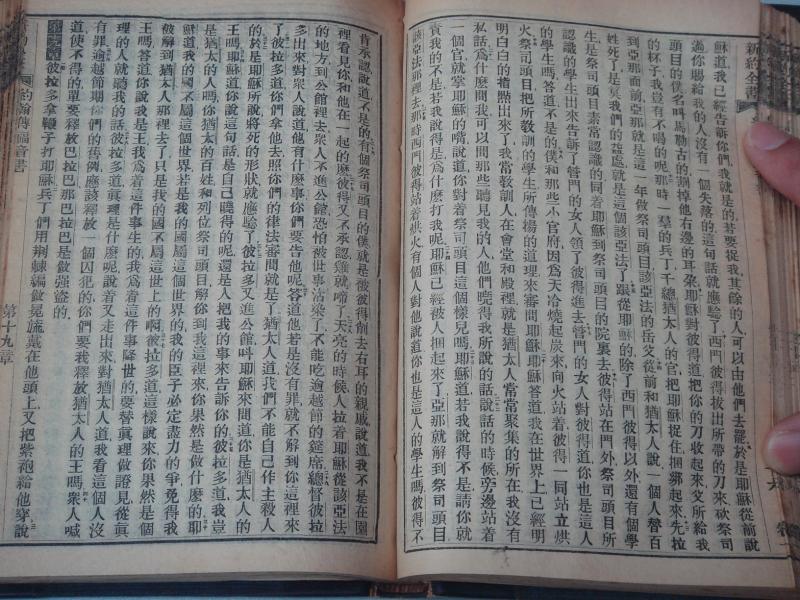 新約全書
穌道我已經告訴你們、我就是的、若要捉我、其餘的人、可以由他們去罷、於是耶穌從前說
過你賜給我的人沒有一個失落的這句話就應驗了、西門彼得拔出所帶的刀來、砍祭司
頭目的僕名叫馬勒古的、割掉他右邊的耳朵、耶穌對彼得道、把你的刀收起來、父所給我
的杯子、我豈有不喝的呢、那時一羣的兵丁、千總、猶太人的官、把耶穌捉住、捆綁起來、先拉
到亞那面前、亞那就是這一年做祭司頭目該亞法的岳父、從前和猶太人說、一個人替百
姓死了、是與我們的益處、就是這個該亞法了、跟從耶穌的、除了西門彼得以外、還有個學
生、是祭司頭目素常認識的、同着耶穌到祭司頭目的院裏去、彼得站在門外、祭司頭目所
認識的學生出來、告訴了管門的女人、領了彼得進去、管門的女人對彼得道、你也是這人
的學生嗎、答道不是的、僕和那些小官府因爲天冷、燒起炭來、向火站着、彼得一同站立烘
火、祭司頭目把所教訓的學生所傳揚的道理、來審問耶穌、耶穌答道、我在世界上已經明
明白白的講出來了、我常常教訓人、在會堂和殿裡、就是猶太人常常聚集的所在、我沒有
私話、爲什麼問我、可以問那些聽見我的人、他們曉得我所說的話、說話的時候、旁邊站着
一個官、就掌耶穌的嘴、說道、你對着祭司頭目、這個樣兒嗎、耶穌道、若我說得不是、請你就
責我的不是、若我說得是、爲什麼打我呢、耶穌已經被人捆起來了、亞那就解到祭司頭目
該亞法那裡去、那時西門彼得站着烘火、有個人對他說道、你也是這人的學生嗎、彼得不
肯承認、說道、不是的、有個祭司頭目的僕、就是被彼得削去右耳的親戚、說道、我不是在園
裡看見你和他在一起的麼、彼得又不承認、雞就啼了、天亮的時候、人拉着耶穌、從該亞法
的地方到公館裡去、衆人不進公館、恐怕被世事沾染了、不能吃逾越節的筵席、總督彼拉
多出來、對衆人說道、他有什麼事、你們要告他呢、答道、他若是沒有罪、就不解到你這裡來
了、彼拉多道、你們拿他去、照你們的律法審問就是了、猶太人道、我們不能自己作主殺人
的、於是耶穌所說將死的形狀就應驗了、彼拉多又進公館、叫耶穌來問道、你是猶太人的
王嗎、耶穌答道、你說這句話、是自己曉得的呢、還是人把我的事來告訴你的、彼拉多道、我豈
是猶太人的人嗎、你猶太的百姓和列位祭司頭目、解你到我這裡來、你果然是做什麼的、耶
穌道、我的國不屬這個世界、若是我的國屬這個世界、我的臣子必定盡力的爭、免得我
被解到猶太人那裡去了、只是我的國不屬這世上的啊、彼拉多道、這樣說來、你果然是個
王嗎、答道、你說我是王、我爲着這件事生的、我爲着這件事降世的、要替眞理做證見、從眞
理的人就聽我的話、彼拉多道、眞理是什麼呢、說着、又走出來對猶太人道、我看這個人沒
有罪、逾越節期、依你們的舊例、應該釋放一個囚犯的、你們要我釋放猶太人的王嗎、衆人喊
道、使不得的、單要釋放巴拉巴、那巴拉巴是做強盜的、
彼拉多拿鞭子打耶穌、兵丁們用荆棘編做冕旒、戴在他頭上、又把紫袍給他穿、說
約翰傳福音書
第十九章